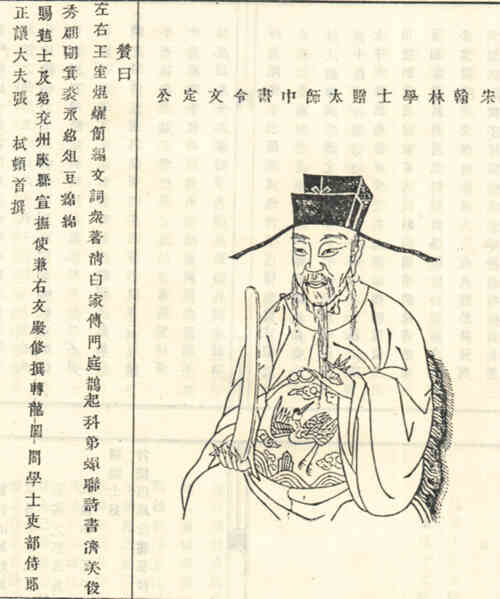 宋翰林學士贈太師中書令文定公
贊曰
左右王室焜燿簡編文詞衆著清白家傳門庭鵲起科第蟬聯詩書濟美俊
秀翩翩箕裘承紹俎豆綿綿
賜進士及第兗州陝縣宣撫使兼右文殿修撰轉龍圖閣學士吏部侍郎
正議大夫張 栻頓首撰